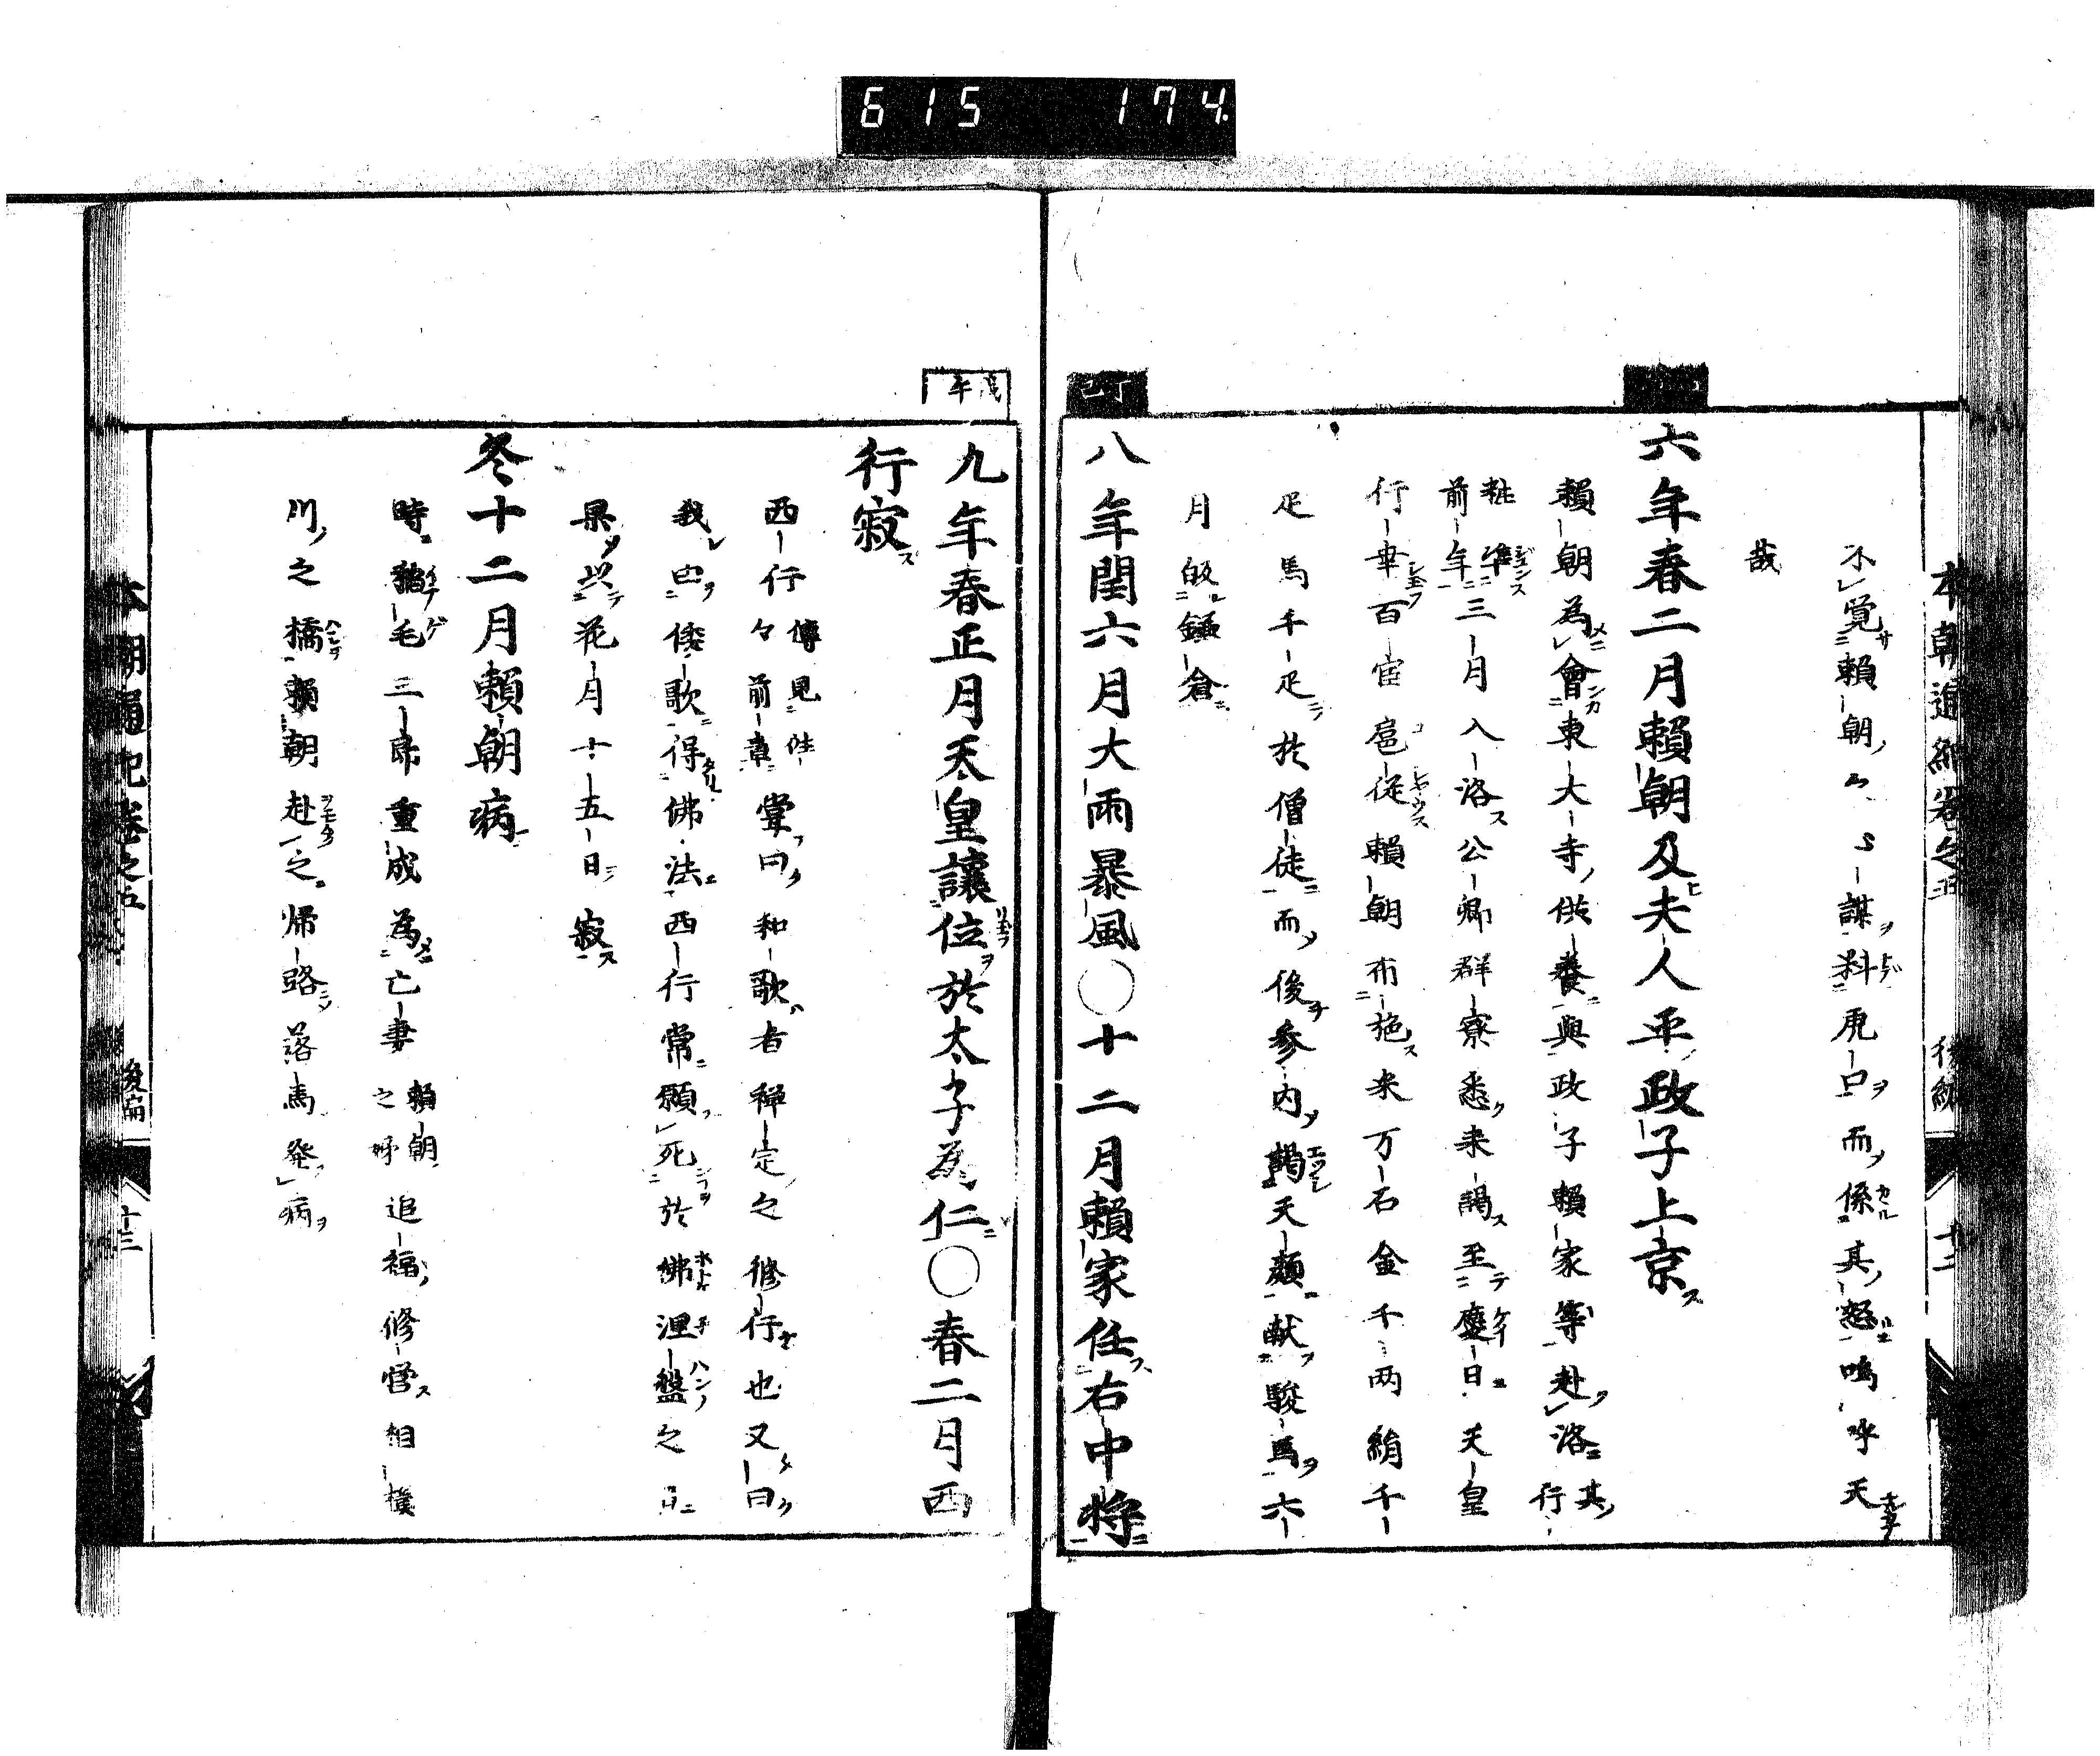 615 174.
不覚頼朝
謀料虎口而係其怒嗚呼天
哉
六年春二月頼朝及夫人平政子上京ス
頼朝為會東大寺供養與政子頼家等赴洛其行
粧準前年三月入洛公卿群寮悉来謁至慶日天皇
行幸百官扈従頼朝布施米万石金千両絹千
疋馬千疋於僧徒而後参内謁天顔献駿馬六
月皈鎌倉
八年閏六月大雨暴風〇十二月頼家任右中将
戊午
九年春正月天皇讓位於太子為仁〇春二月西
行寂ス
西行傳見性々前章嘗曰和歌者禅定之修行也又曰
我也倭歌得佛法西行常願死於佛涅盤之日
果以花月十五日寂ス
冬十二月頼朝病
時毛三郎重成為亡妻頼朝之姉追福修営相模
川之橋頼朝赴之帰路落馬発病
本朝通紀巻之五 後編 十三